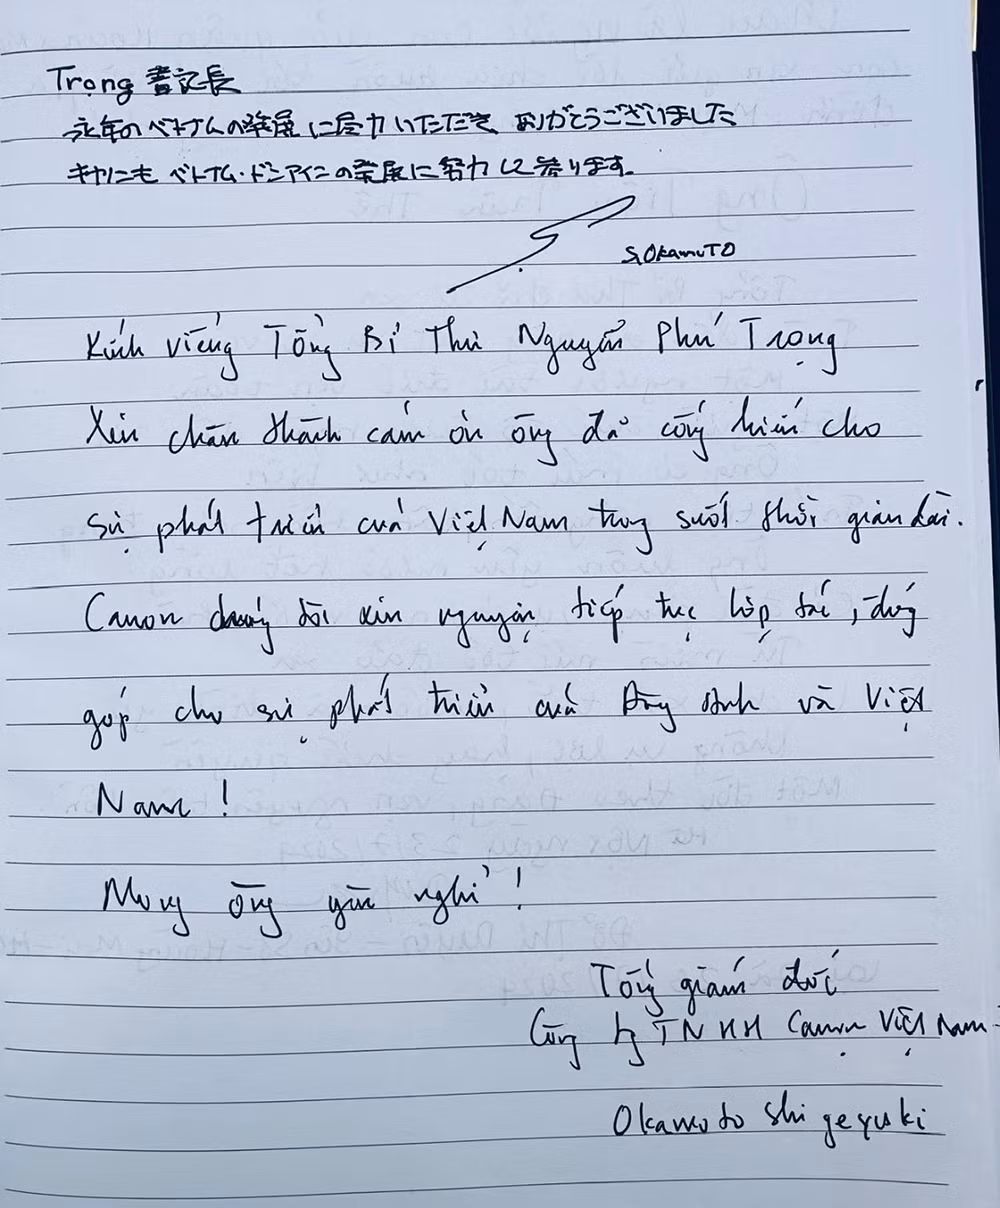 Trọng 書記長
永年のベトナムの発展に尽力いただき ありがとうございました
キヤノンも ベトナム・ドンアインの発展に努力して参ります。
S.OkamoTO
Kính viếng Tổng Bí Thư Nguyễn Phú Trọng
Xin chân thành cảm ơn ông đã cống hiến cho
sự phát triển của Việt Nam trong suốt thời gian dài.
Canon chúng tôi xin nguyện tiếp tục hợp tác, đóng
góp cho sự phát triển của Đông Anh và Việt
Nam!
Mong ông yên nghỉ!
Tổng giám đốc
Công ty TNHH Canon Việt Nam
Okamoto Shigeyuki